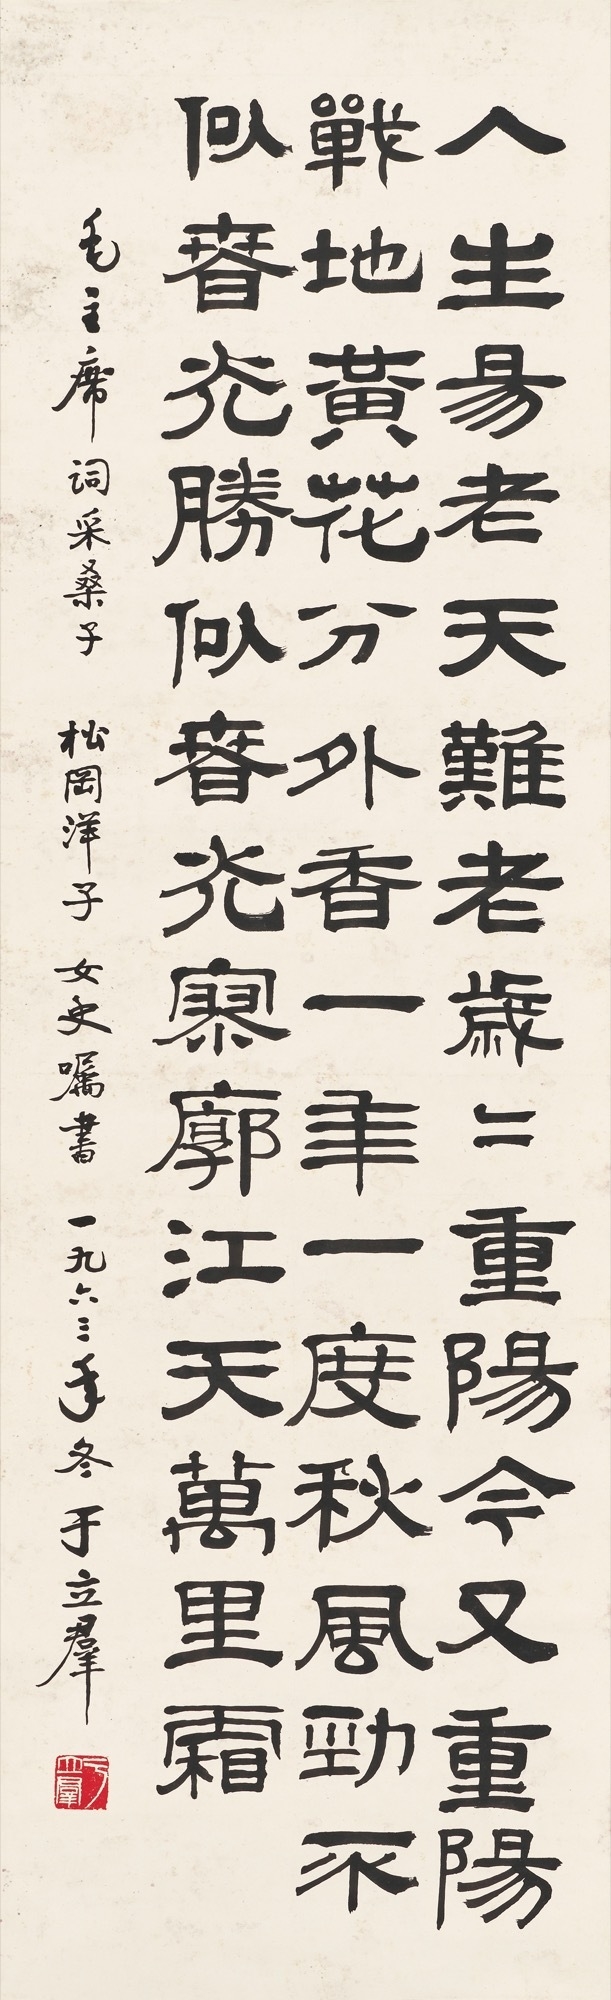 人生易老天難老歲二重陽今又重陽
戰地黃花分外香一年一度秋風勁不
似春光勝似春光寥廓江天萬里霜
毛主席詞采桑子 松岡洋子女史嘱書 一九六三年冬于立羣
于立羣